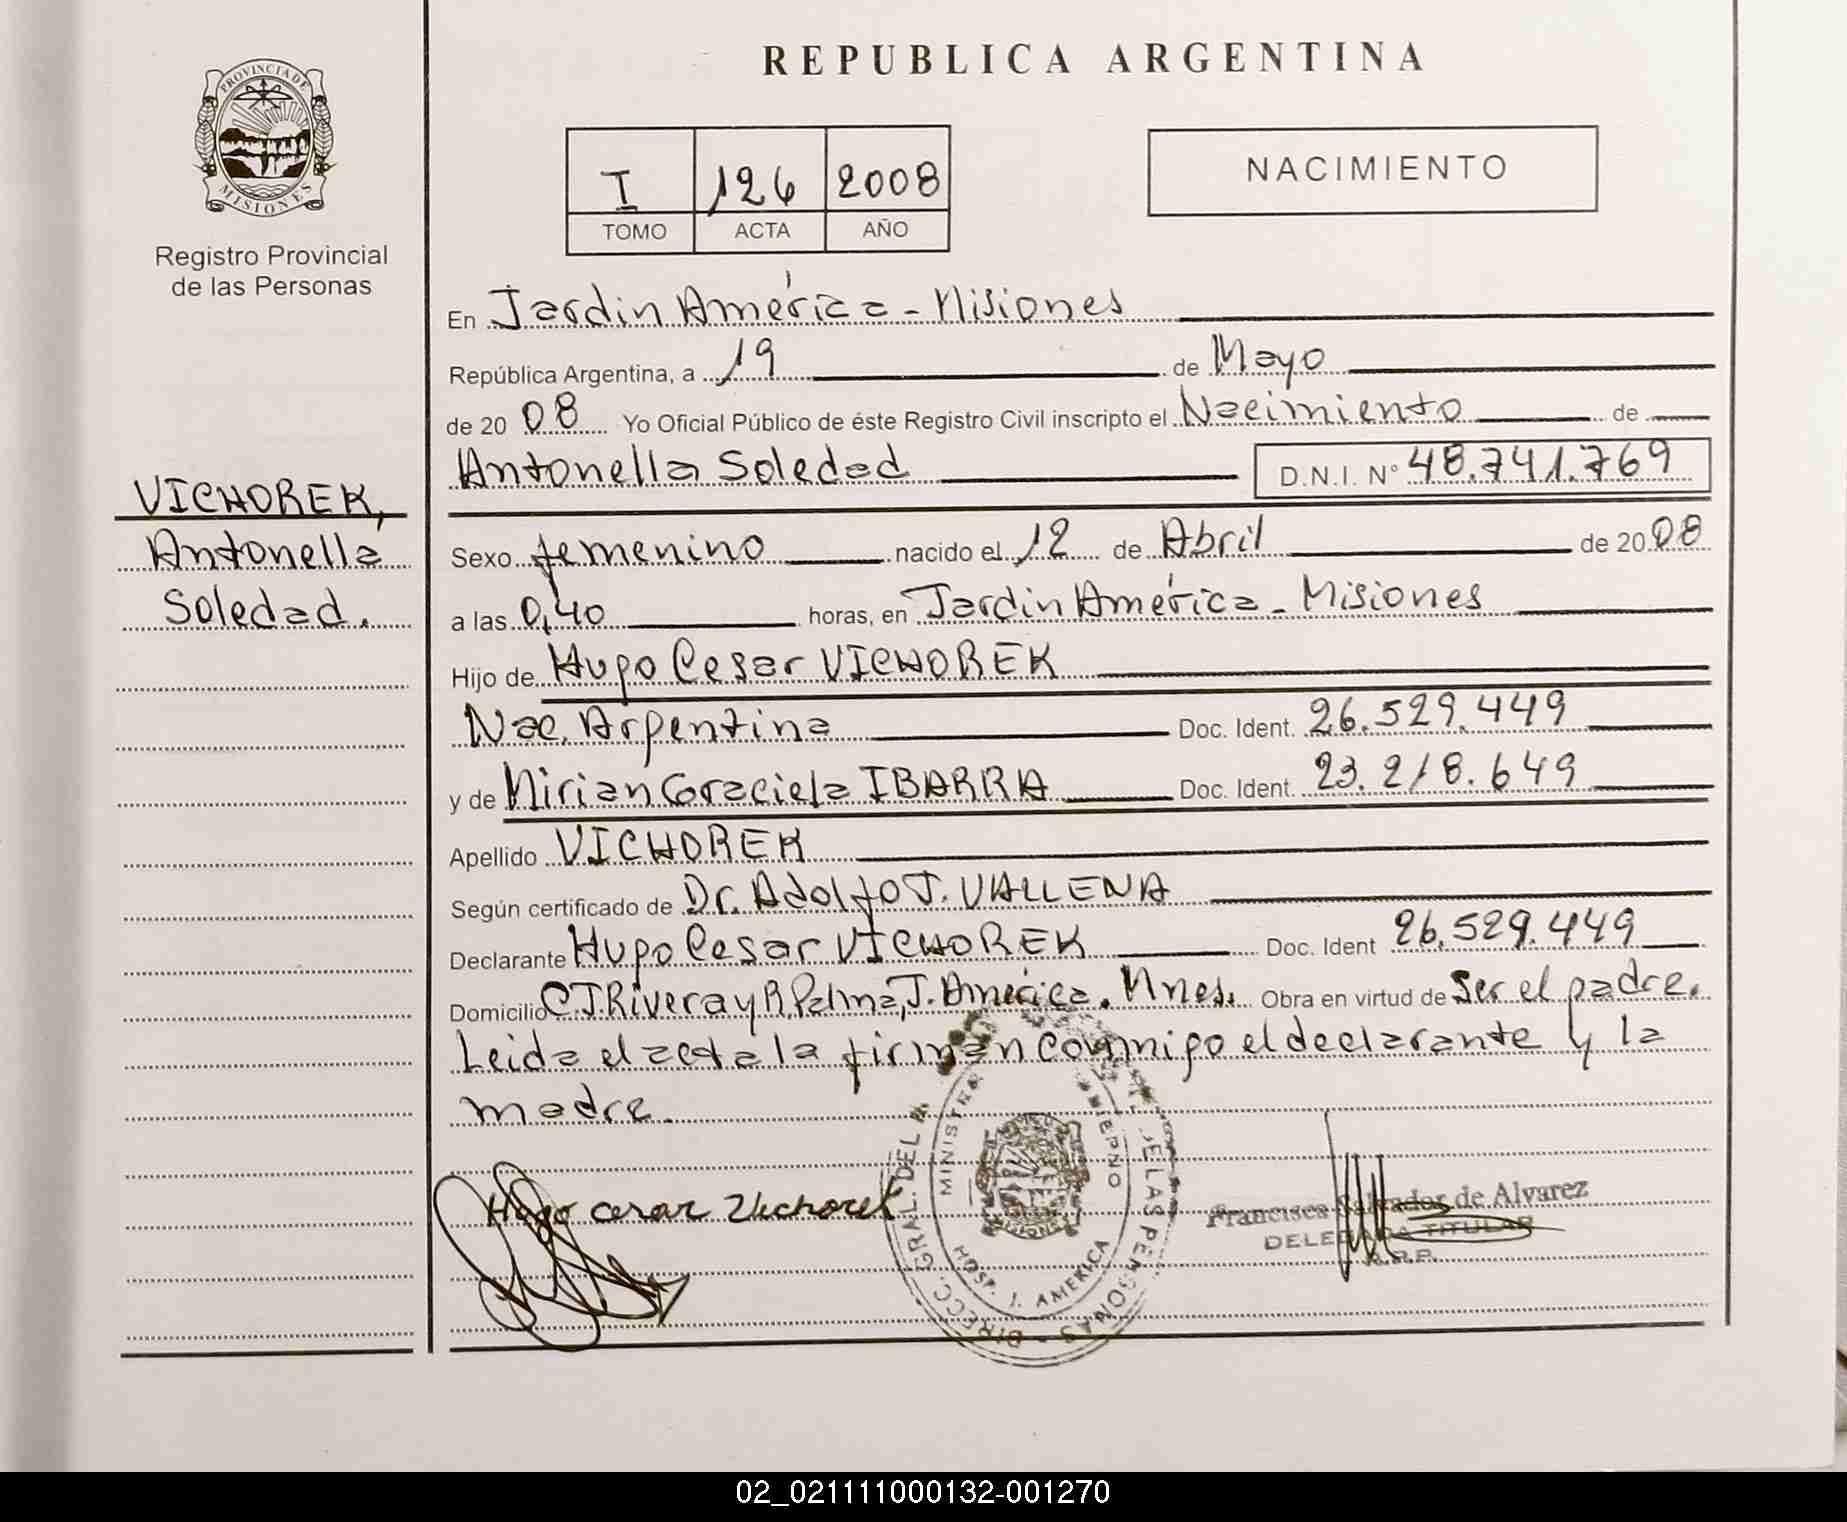 REPUBLICA ARGENTINA
PROVINCIA DE
MISIONES
Registro Provincial
de las Personas
I 126 2008
TOMO ACTA AÑO
NACIMIENTO
VICHOREK,
Antonella
Soledad.
En Jardin América - Misiones
República Argentina, a 19 de Mayo
de 20 08 Yo Oficial Público de éste Registro Civil inscripto el Nacimiento de
Antonella Soledad D.N.I. Nº 48.741.769
Sexo femenino nacido el 12 de Abril de 20 08
a las 0,40 horas, en Jardin América - Misiones
Hijo de Hugo Cesar VICHOREK
Nac. Argentina Doc. Ident. 26.529.449
y de Mirian Graciela IBARRA Doc. Ident. 23.218.649
Apellido VICHOREK
Según certificado de Dr. Adolfo J. VALLENA
Declarante Hugo Cesar VICHOREK Doc. Ident 26.529.449
Domicilio C.J. Rivera y R. Palma, J. América. Mnes. Obra en virtud de Ser el padre.
Leida el acta la firman conmigo el declarante y la
madre.
Hugo cesar Vichorek
DIRECC. GRAL. DEL R ELAS PERSONAS
MINISTER BIERNO
HOSP. J. AMERICA
MISIONES
Francisca Salvador de Alvarez
DELEGADA TITULAR
R.R.P.
02_021111000132-001270